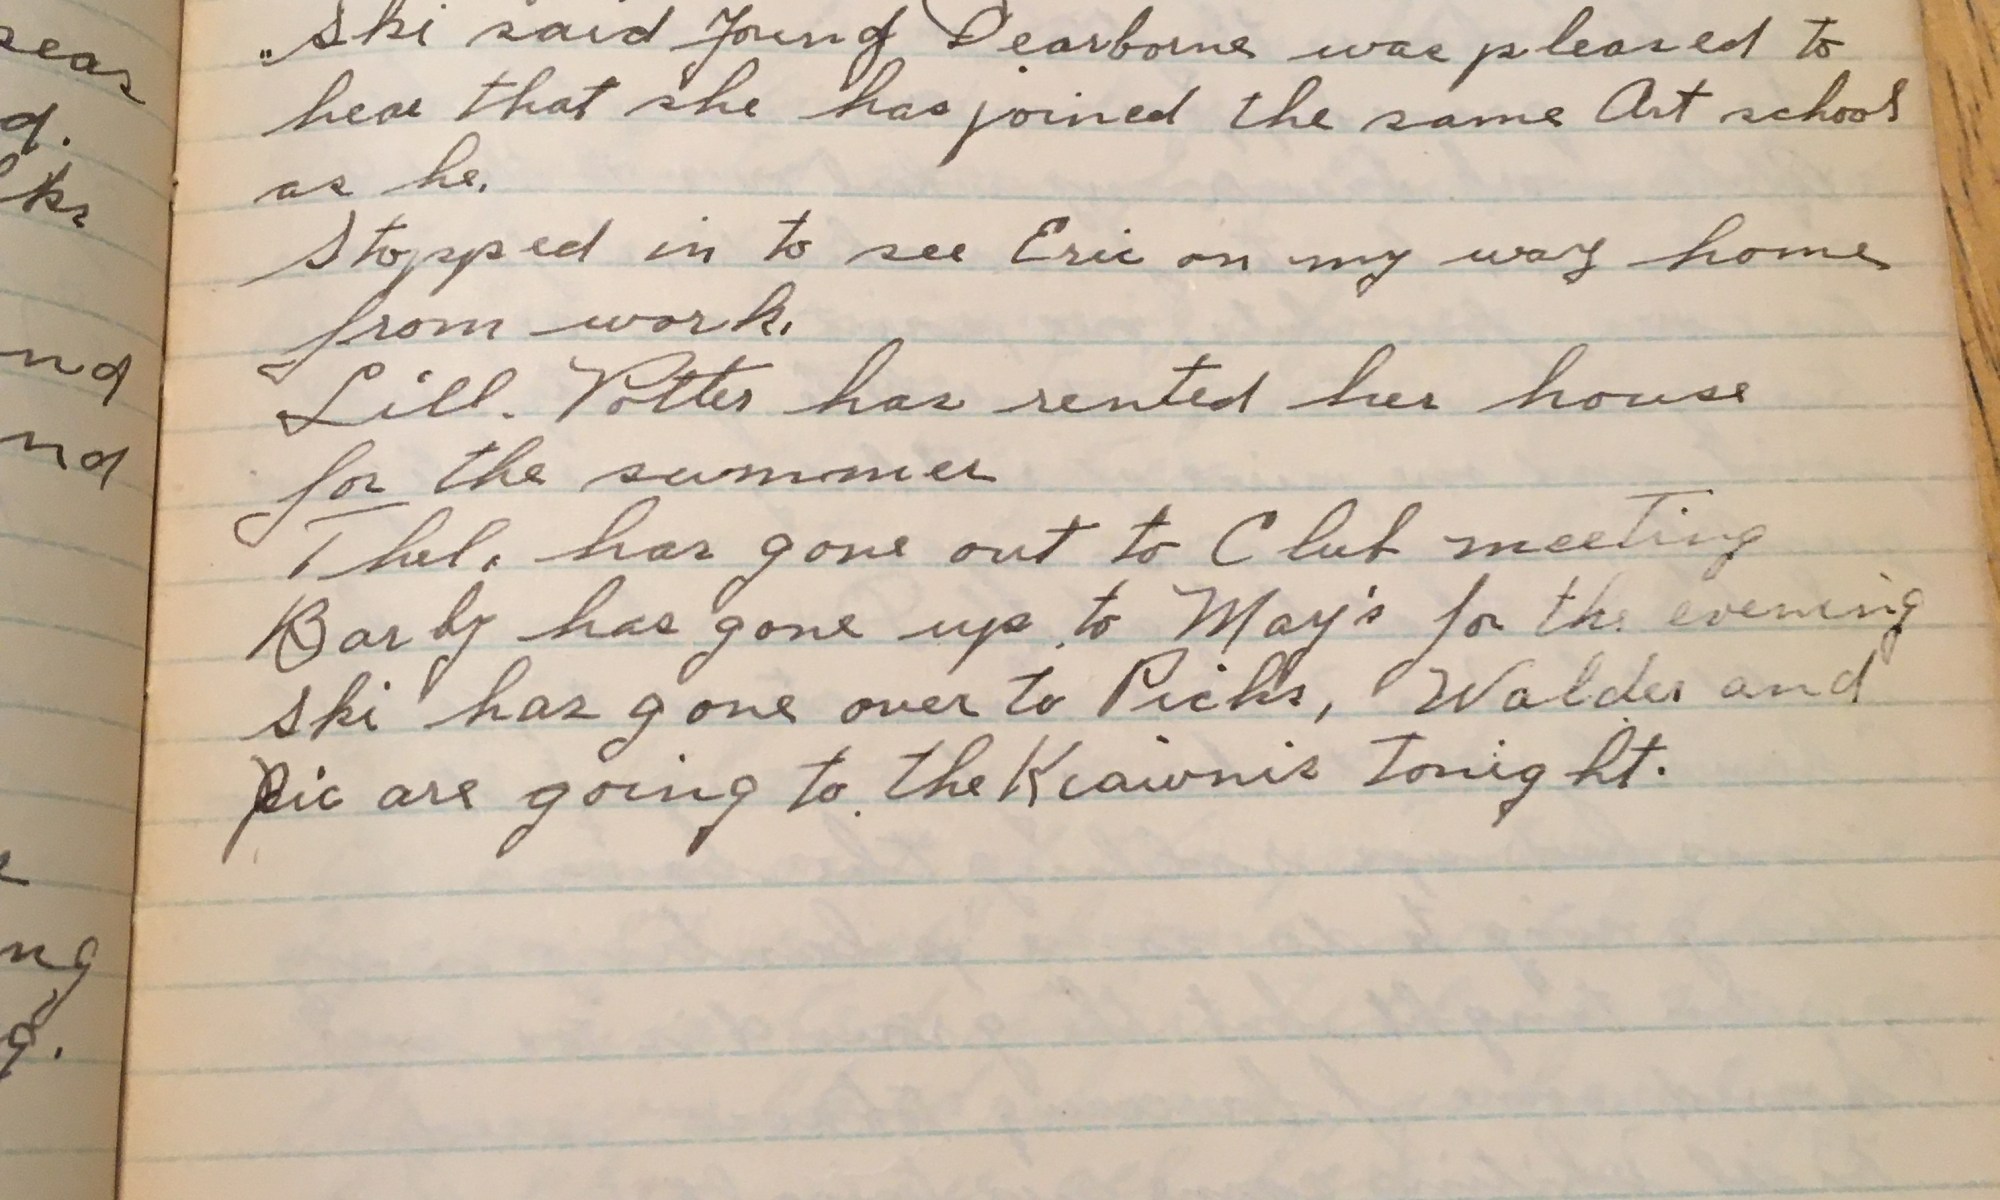 seas
d.
ks
nd
nd
ng
g.
" Ski said Young Dearborne was pleased to
hear that she has joined the same Art school
as he.
Stopped in to see Eric on my way home
from work.
Lill. Potter has rented her house
for the summer
Thel. has gone out to Club meeting
Barby has gone up to May's for the evening
Ski has gone over to Picks, Walder and
Pic are going to the Kiawnis tonight.